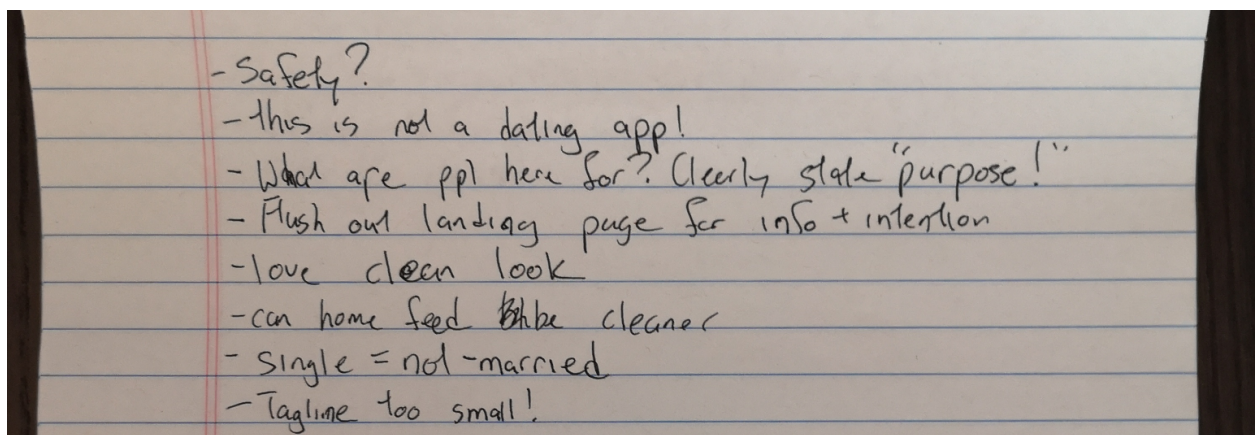 - Safety?
- this is not a dating app!
- What are ppl here for? Clearly state "purpose!"
- Flush out landing page for info + intention
- love clean look
- can home feed be cleaner
- single = not-married
- Tagline too small!